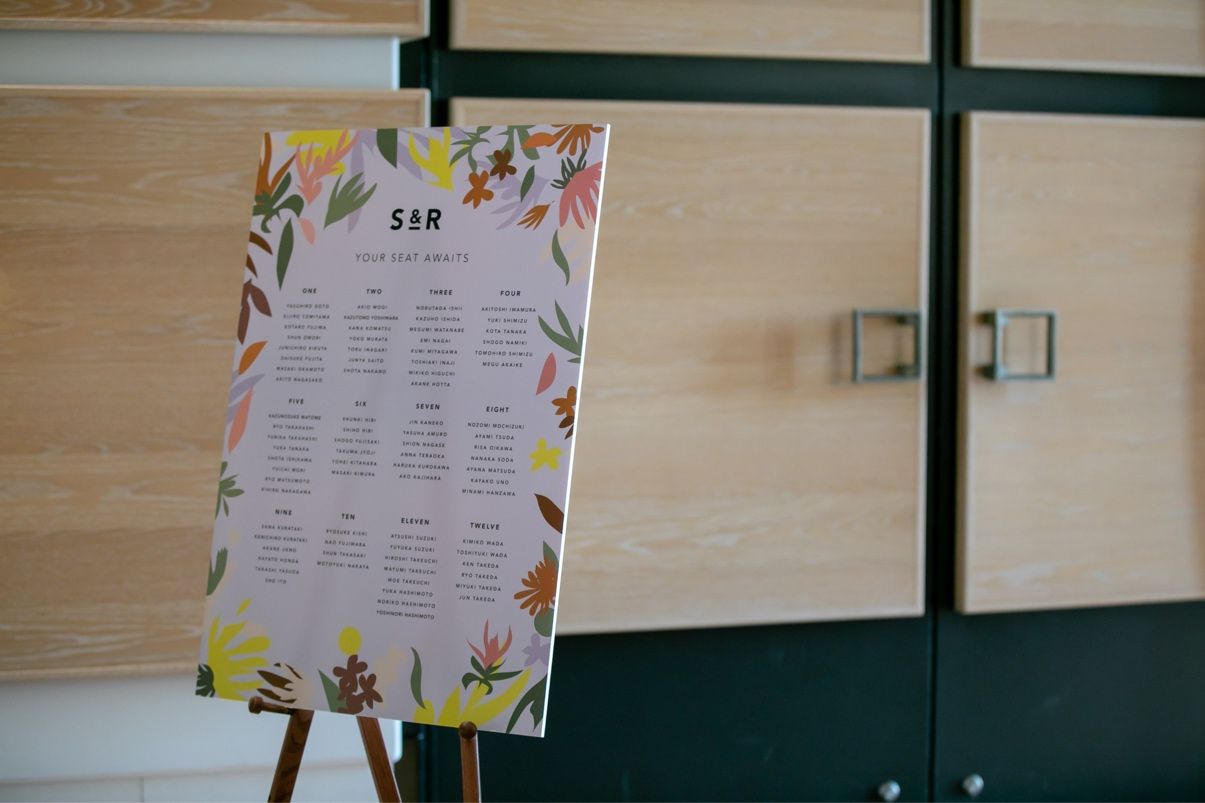 S&R
YOUR SEAT AWAITS
ONE
YASUHIRO GOTO
EIJIRO TOMIYAMA
KOTARO FUJIWA
SHUN OMORI
JUNICHIRO KIKUTA
DAISUKE FUJITA
MASAKI OKAMOTO
AKITO NAGASAKO
TWO
AKIO MOGI
KAZUTOMO YOSHIMARA
KANA KOMATSU
YOKO MURATA
TORU INAGARI
JUNYA SAITO
SHOTA NAKANO
THREE
NOBUTADA ISHII
KAZUHO ISHIDA
MEGUMI WATANABE
EMI NAGAI
KUMI MIYAGAWA
TOSHIAKI INAJI
MIKIKO HIGUCHI
AKANE HOTTA
FOUR
AKITOSHI IWAMURA
YUKI SHIMIZU
KOTA TANAKA
SHOGO NAMIKI
TOMOHIRO SHIMIZU
MEGU AKAIKE
FIVE
KAZUNOSUKE WATOME
RYO TAKAHASHI
YURIKA TAKAHASHI
YUKA TANAKA
SHOTA ISHIKAWA
YUICHI MORI
RYO MATSUMOTO
KIHIRO NAKAGAWA
SIX
SHUNKI HIBI
SHIHO HIBI
SHOGO FUJISAKI
TAKUMA JYOJI
YOHEI KITAHARA
MASAKI KIMURA
SEVEN
JIN KANEKO
YASUHA AMURO
SHION NAGASE
ANNA TERAOKA
HARUKA KUROKAWA
AKO KAJIHARA
EIGHT
NOZOMI MOCHIZUKI
AYAMI TSUDA
RISA OIKAWA
NANAKA SODA
AYANA MATSUDA
KAYAKO UNO
MINAMI HANZAWA
NINE
SANA KURATAKI
KENICHIRO KURATAKI
AKANE UENO
HAYATO HONDA
TAKASHI YASUDA
SHO ITO
TEN
RYOSUKE KISHI
NAO FUJIWARA
SHUN TAKASAKI
MOTOYUKI NAKAYA
ELEVEN
ATSUSHI SUZUKI
FUYUKA SUZUKI
HIROSHI TAKEUCHI
MAYUMI TAKEUCHI
MOE TAKEUCHI
YUKA HASHIMOTO
NORIKO HASHIMOTO
YOSHINORI HASHIMOTO
TWELVE
KIMIKO WADA
TOSHIYUKI WADA
KEN TAKEDA
RYO TAKEDA
MIYUKI TAKEDA
JUN TAKEDA